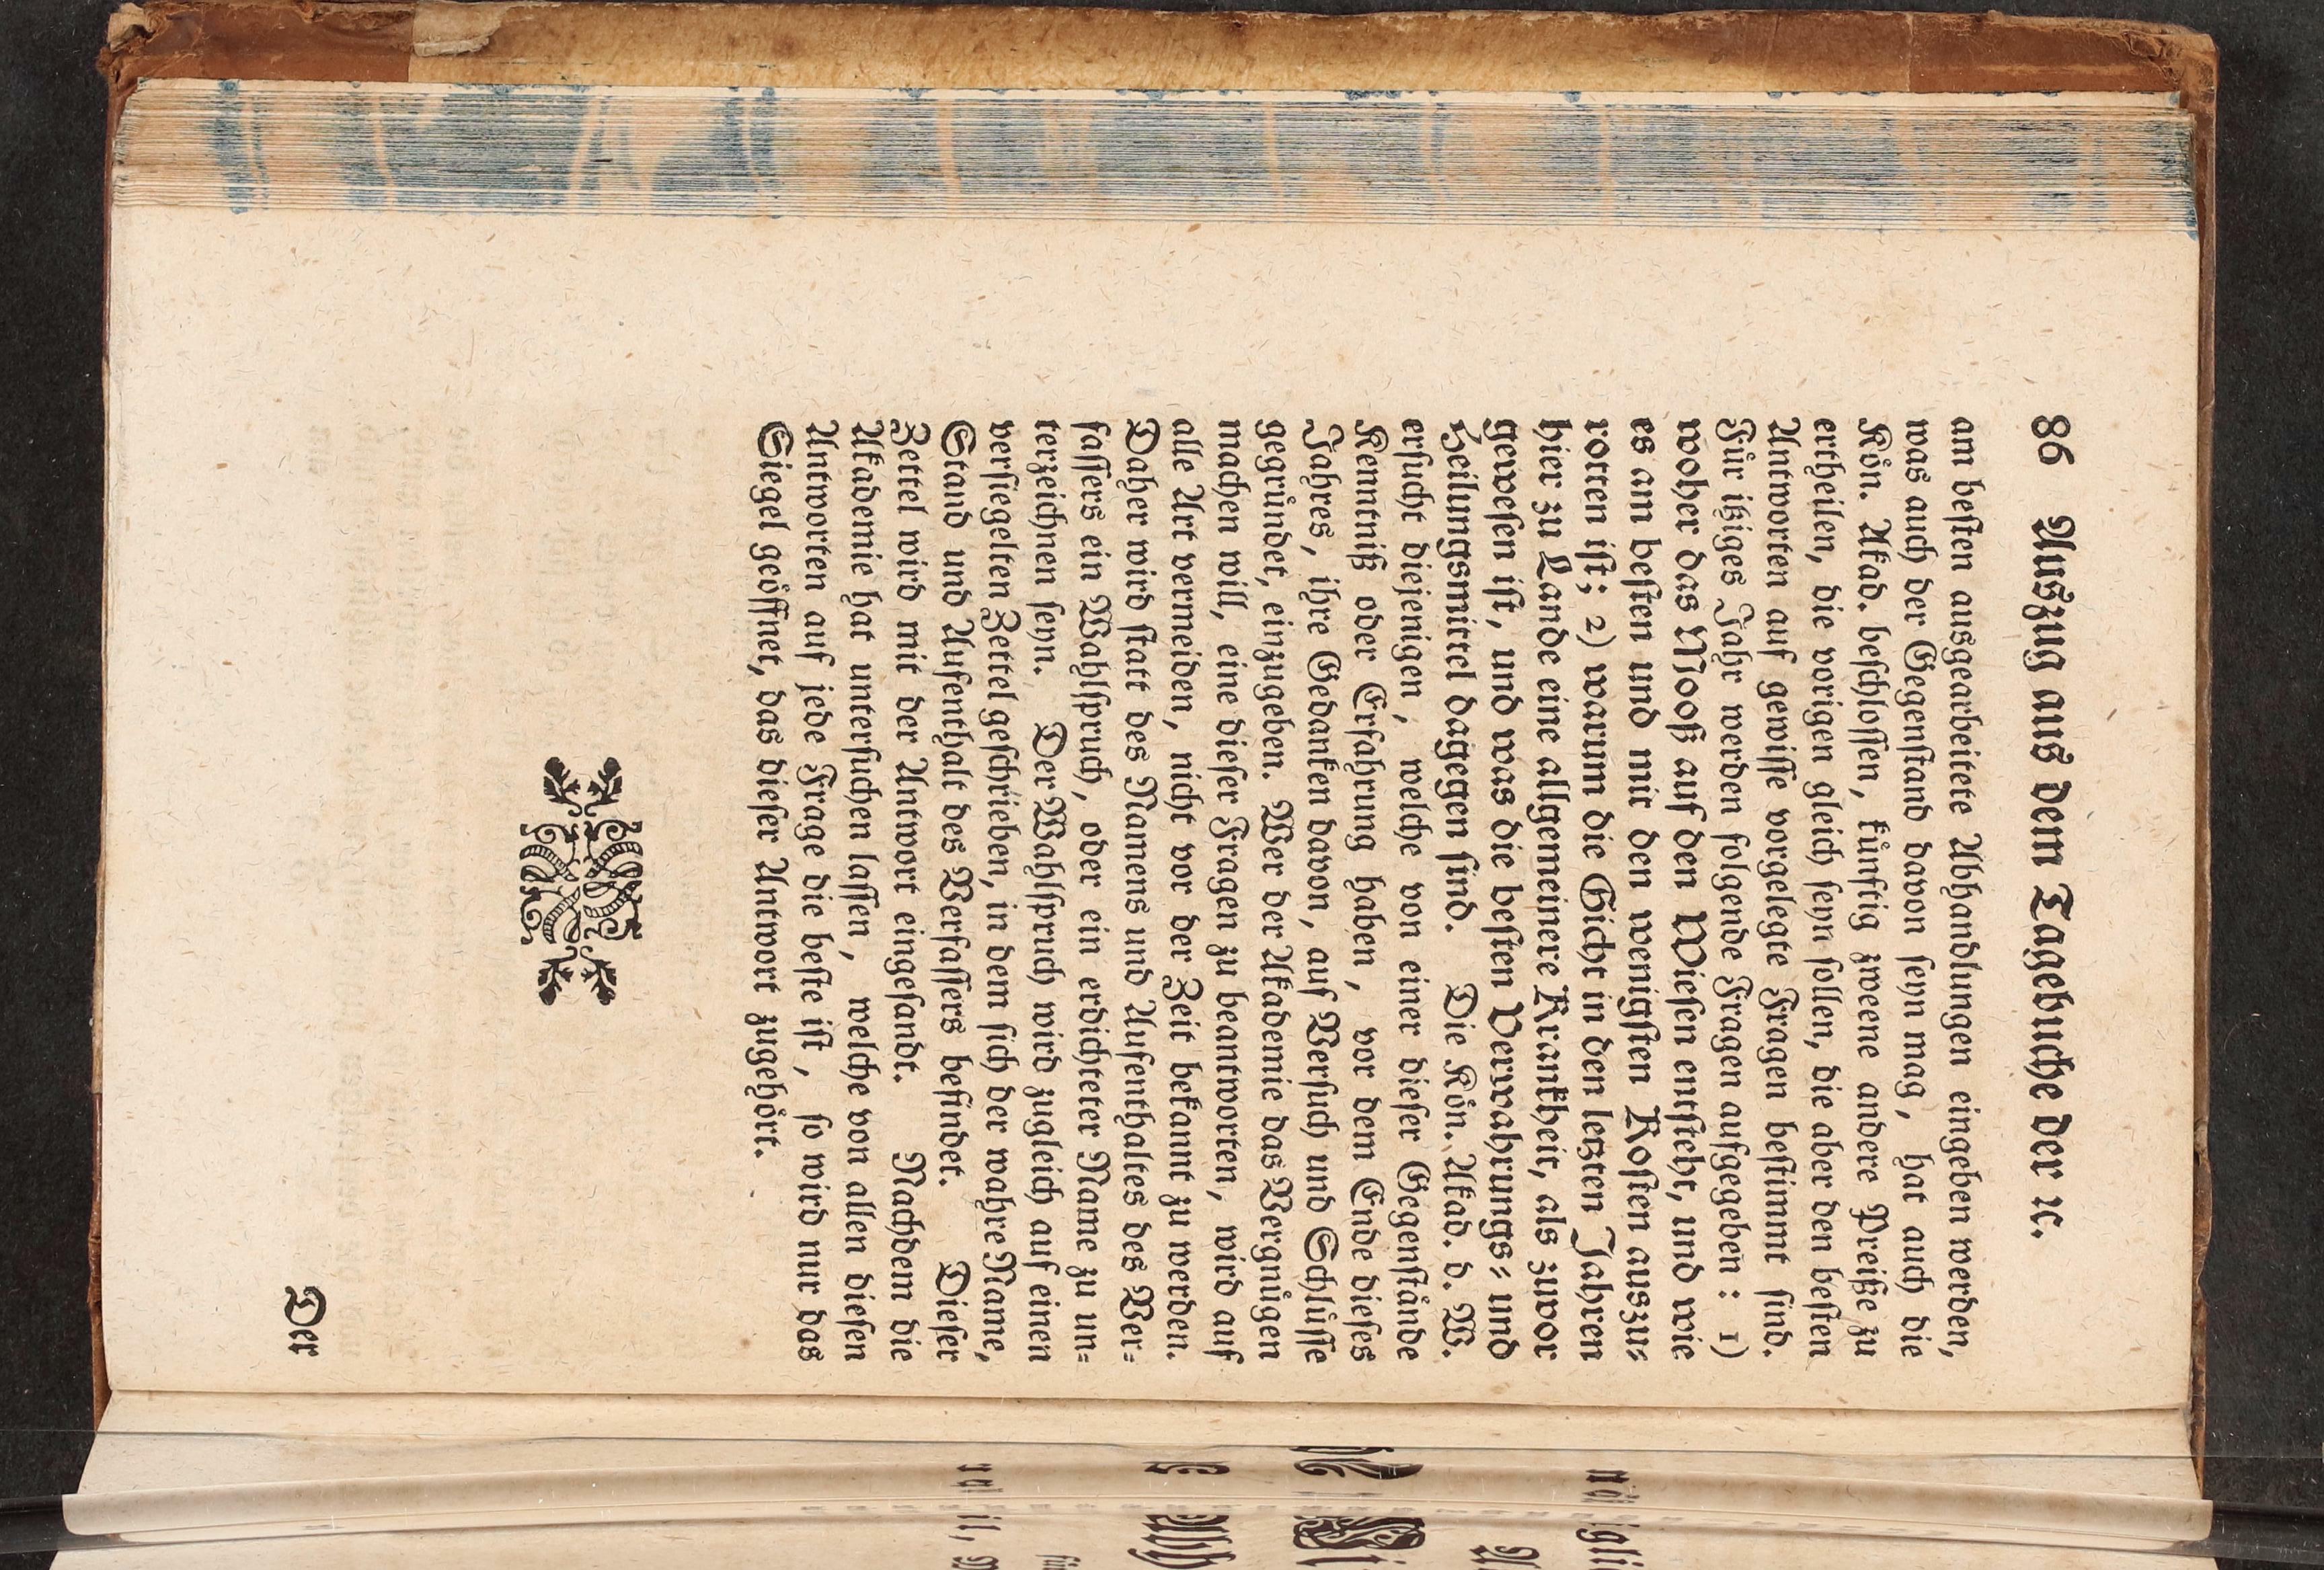 86 Auszug aus dem Tagebuche der ꝛc.
am beſten ausgearbeitete Abhandlungen eingeben werden,
was auch der Gegenſtand davon ſeyn mag, hat auch die
Koͤn. Akad. beſchloſſen, kuͤnftig zweene andere Preiße zu
ertheilen, die vorigen gleich ſeyn ſollen, die aber den beſten
Antworten auf gewiſſe vorgelegte Fragen beſtimmt ſind.
Fuͤr itziges Jahr werden folgende Fragen aufgegeben: 1)
woher das Mooß auf den Wieſen entſteht, und wie
es am beſten und mit den wenigſten Koſten auszu-
rotten iſt; 2) warum die Gicht in den letzten Jahren
hier zu Lande eine allgemeinere Krankheit, als zuvor
geweſen iſt, und was die beſten Verwahrungs- und
Heilungsmittel dagegen ſind. Die Koͤn. Akad. d. W.
erſucht diejenigen, welche von einer dieſer Gegenſtaͤnde
Kenntniß oder Erfahrung haben, vor dem Ende dieſes
Jahres, ihre Gedanken davon, auf Verſuch und Schluͤſſe
gegruͤndet, einzugeben. Wer der Akademie das Vergnuͤgen
machen will, eine dieſer Fragen zu beantworten, wird auf
alle Art vermeiden, nicht vor der Zeit bekannt zu werden.
Daher wird ſtatt des Namens und Aufenthaltes des Ver-
faſſers ein Wahlſpruch, oder ein erdichteter Name zu un-
terzeichnen ſeyn. Der Wahlſpruch wird zugleich auf einen
verſiegelten Zettel geſchrieben, in dem ſich der wahre Name,
Stand und Aufenthalt des Verfaſſers befindet. Dieſer
Zettel wird mit der Antwort eingeſandt. Nachdem die
Akademie hat unterſuchen laſſen, welche von allen dieſen
Antworten auf jede Frage die beſte iſt, ſo wird nur das
Siegel geoͤffnet, das dieſer Antwort zugehoͤrt.
Der